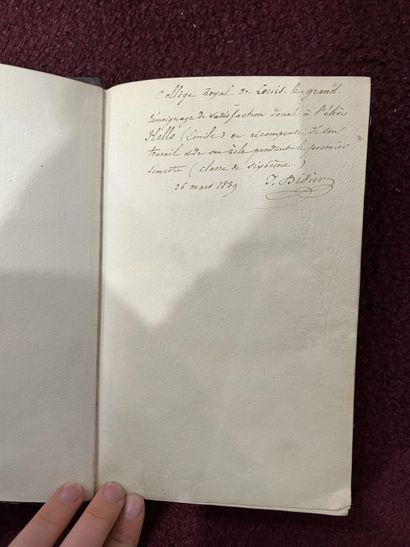 Collège Royal de Louis-le-grand.
témoignage de satisfaction donné à l'élève
Hello (Emile) en récompense de son
travail & de son zèle pendant le premier
semestre (classe de sixième.)
26 mars 1839 J. Didier